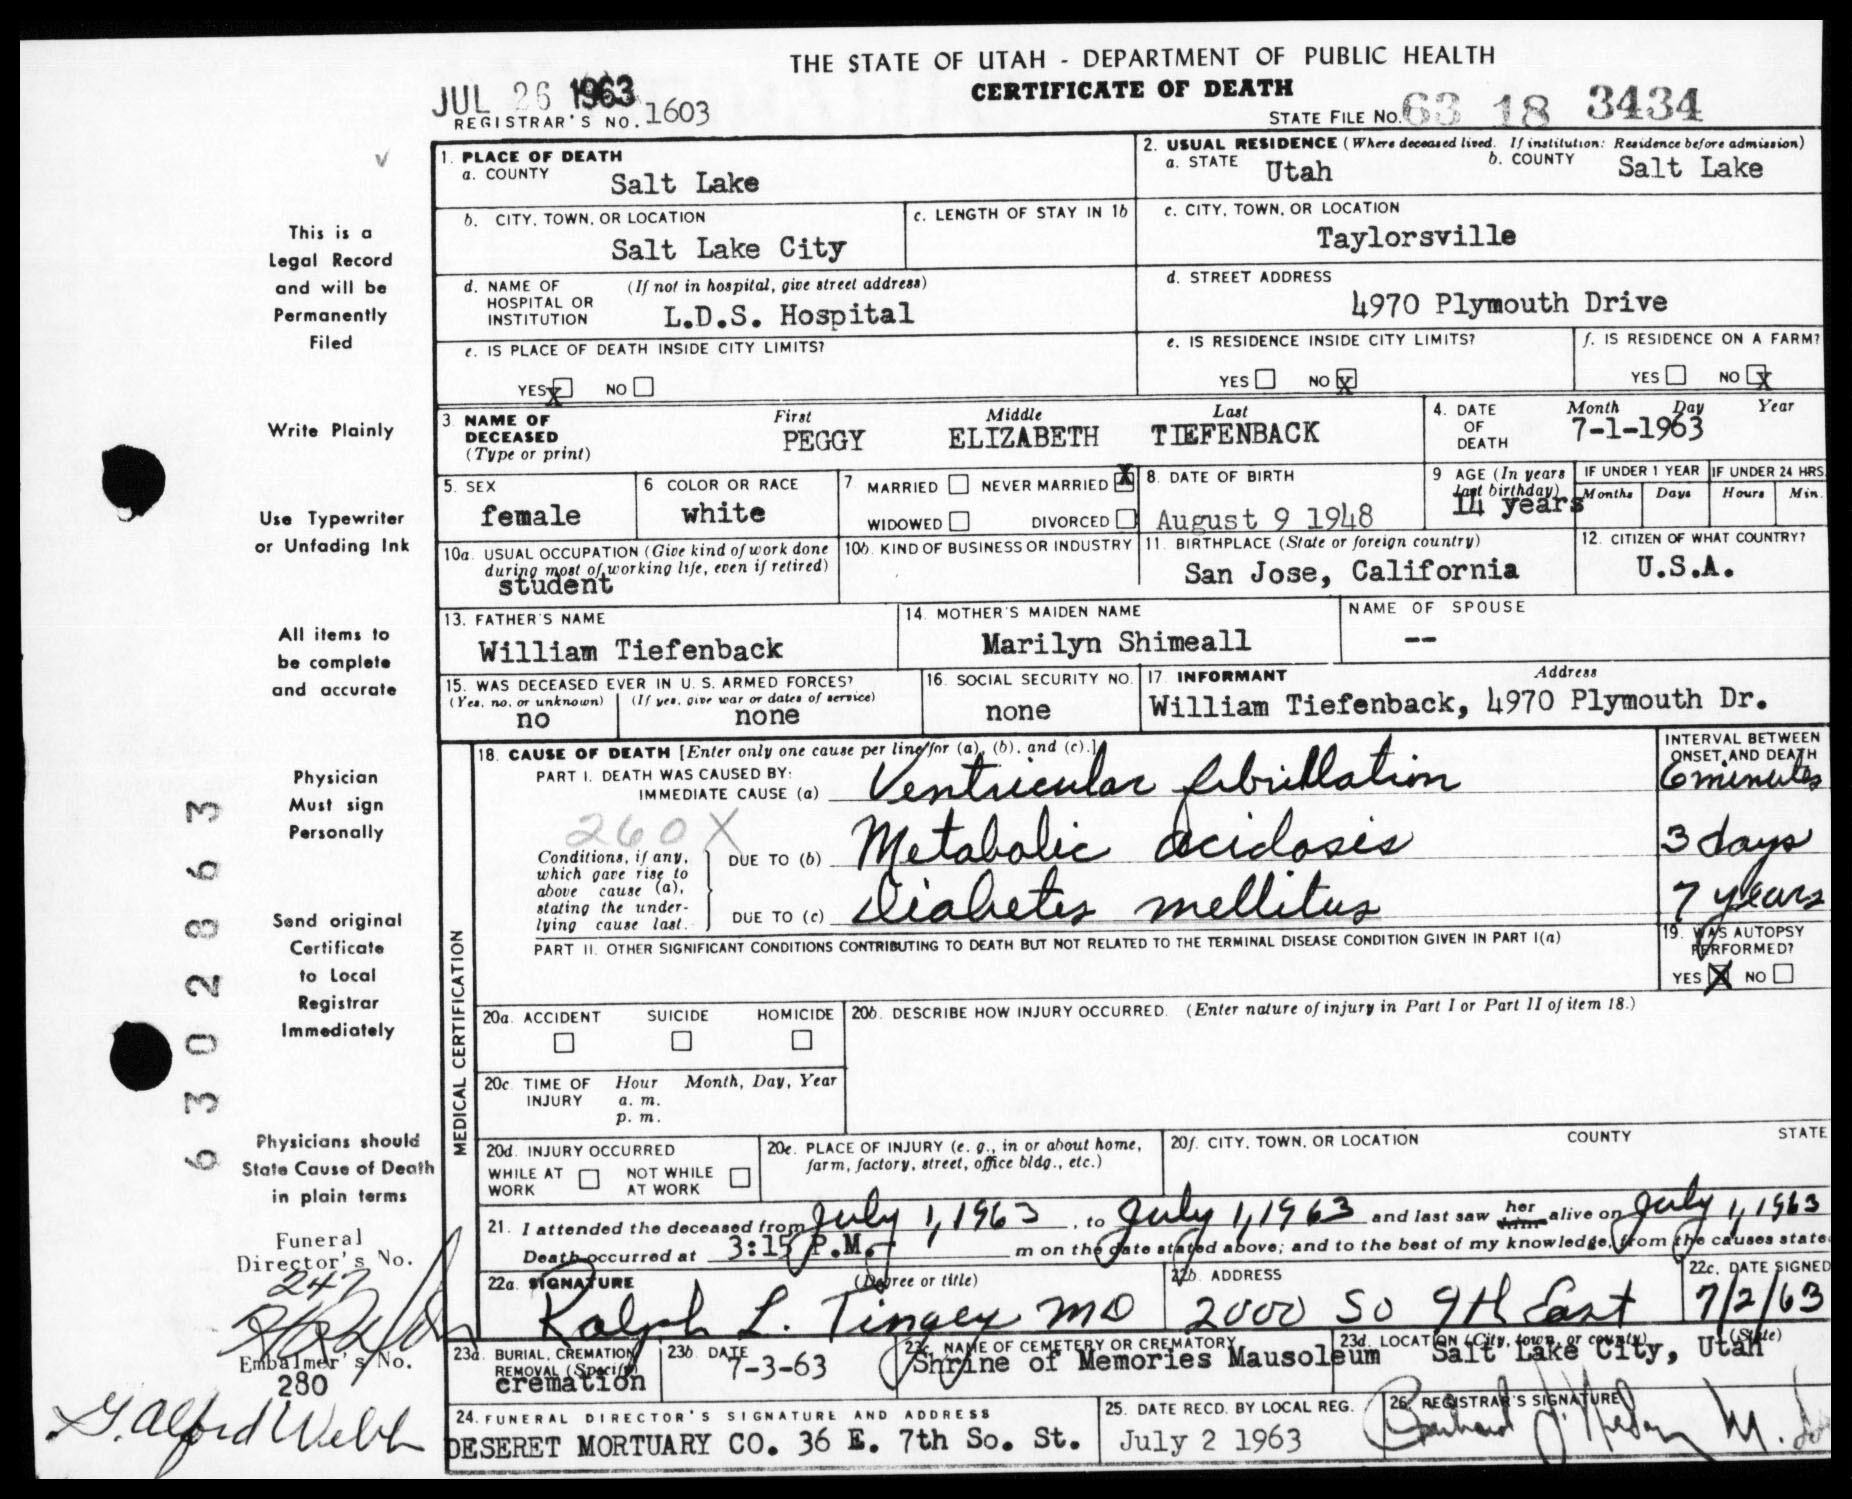 THE STATE OF UTAH - DEPARTMENT OF PUBLIC HEALTH
CERTIFICATE OF DEATH
JUL 26 1963
REGISTRAR'S NO. 1603
STATE FILE NO. 63 18 3434
1. PLACE OF DEATH
a. COUNTY Salt Lake
2. USUAL RESIDENCE (Where deceased lived. If institution: Residence before admission)
a. STATE Utah b. COUNTY Salt Lake
b. CITY, TOWN, OR LOCATION Salt Lake City
c. LENGTH OF STAY IN 1b
c. CITY, TOWN, OR LOCATION Taylorsville
d. NAME OF HOSPITAL OR INSTITUTION (If not in hospital, give street address) L.D.S. Hospital
d. STREET ADDRESS 4970 Plymouth Drive
e. IS PLACE OF DEATH INSIDE CITY LIMITS? YES X NO
e. IS RESIDENCE INSIDE CITY LIMITS? YES NO X
f. IS RESIDENCE ON A FARM? YES NO X
3 NAME OF DECEASED (Type or print) First PEGGY Middle ELIZABETH Last TIEFENBACK
4. DATE OF DEATH Month Day Year 7-1-1963
5. SEX female
6 COLOR OR RACE white
7 MARRIED NEVER MARRIED X WIDOWED DIVORCED
8. DATE OF BIRTH August 9 1948
9 AGE (In years last birthday) 14 years
IF UNDER 1 YEAR Months Days
IF UNDER 24 HRS. Hours Min.
10a. USUAL OCCUPATION (Give kind of work done during most of working life, even if retired) student
10b. KIND OF BUSINESS OR INDUSTRY
11. BIRTHPLACE (State or foreign country) San Jose, California
12. CITIZEN OF WHAT COUNTRY? U.S.A.
13. FATHER'S NAME William Tiefenback
14. MOTHER'S MAIDEN NAME Marilyn Shimeall
NAME OF SPOUSE --
15. WAS DECEASED EVER IN U.S. ARMED FORCES? (Yes, no, or unknown) no (If yes, give war or dates of service) none
16. SOCIAL SECURITY NO. none
17 INFORMANT Address William Tiefenback, 4970 Plymouth Dr.
MEDICAL CERTIFICATION
18. CAUSE OF DEATH [Enter only one cause per line for (a), (b), and (c).]
INTERVAL BETWEEN ONSET AND DEATH
PART I. DEATH WAS CAUSED BY:
IMMEDIATE CAUSE (a) Ventricular fibrillation 6 minutes
260X
Conditions, if any, which gave rise to above cause (a), stating the underlying cause last.
DUE TO (b) Metabolic acidosis 3 days
DUE TO (c) Diabetes mellitus 7 years
PART II. OTHER SIGNIFICANT CONDITIONS CONTRIBUTING TO DEATH BUT NOT RELATED TO THE TERMINAL DISEASE CONDITION GIVEN IN PART I(a)
19. WAS AUTOPSY PERFORMED? YES X NO
20a. ACCIDENT SUICIDE HOMICIDE
20b. DESCRIBE HOW INJURY OCCURRED. (Enter nature of injury in Part I or Part II of item 18.)
20c. TIME OF INJURY Hour a. m. p. m. Month, Day, Year
20d. INJURY OCCURRED WHILE AT WORK NOT WHILE AT WORK
20e. PLACE OF INJURY (e. g., in or about home, farm, factory, street, office bldg., etc.)
20f. CITY, TOWN, OR LOCATION COUNTY STATE
21. I attended the deceased from July 1, 1963, to July 1, 1963 and last saw her him alive on July 1, 1963
Death occurred at 3:15 P.M. m on the date stated above; and to the best of my knowledge, from the causes state
22a. SIGNATURE (Degree or title) Ralph L. Tingey MD
22b. ADDRESS 2000 So 9th East
22c. DATE SIGNED 7/2/63
23a. BURIAL, CREMATION REMOVAL (Specify) cremation
23b. DATE 7-3-63
23c. NAME OF CEMETERY OR CREMATORY Shrine of Memories Mausoleum
23d. LOCATION (City, town, or county) (State) Salt Lake City, Utah
24. FUNERAL DIRECTOR'S SIGNATURE AND ADDRESS
DESERET MORTUARY CO. 36 E. 7th So. St.
25. DATE RECD. BY LOCAL REG. July 2 1963
26. REGISTRAR'S SIGNATURE
This is a
Legal Record
and will be
Permanently
Filed
Write Plainly
Use Typewriter
or Unfading Ink
All items to
be complete
and accurate
Physician
Must sign
Personally
Send original
Certificate
to Local
Registrar
Immediately
Physicians should
State Cause of Death
in plain terms
6302863
Funeral
Director's No.
247
Embalmer's No.
280
G. Alford Webb